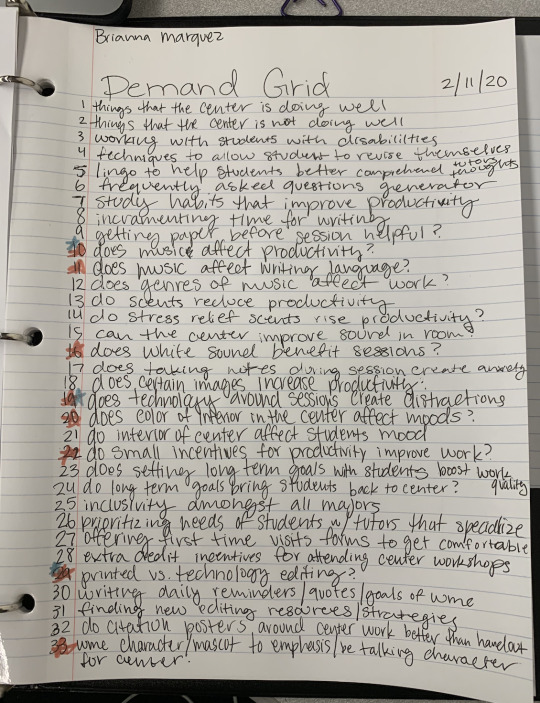 Brianna Marquez
Demand Grid 2/11/20
1 things that the center is doing well
2 things that the center is not doing well
3 working with students with disabilities
4 techniques to allow student to revise themselves
5 lingo to help students better comprehend tutors thoughts
6 frequently asked questions generator
7 study habits that improve productivity
8 incramenting time for writing
9 getting paper before session helpful?
10 does music affect productivity?
11 does music affect writing language?
12 does genres of music affect work?
13 do scents reduce productivity
14 do stress relief scents rise productivity?
15 can the center improve sound in room?
16 does white sound benefit sessions?
17 does taking notes during session create anxiety
18 does certain images increase productivity?
19 does technology around sessions create distractions
20 does color of interior in the center affect moods?
21 do interior of center affect students mood
22 do small incentives for productivity improve work?
23 does setting long term goals with students boost work quality
24 do long term goals bring students back to center?
25 inclusivity amongst all majors
26 prioritizing needs of students w/ tutors that specialize
27 offering first time visits forms to get comfortable
28 extra credit incentives for attending center workshops
29 printed vs. technology editing?
30 writing daily reminders/quotes/goals of wme
31 finding new editing resources/strategies
32 do citation posters around center work better than handout
33 wme character/mascot to emphasis/be talking character
for center?